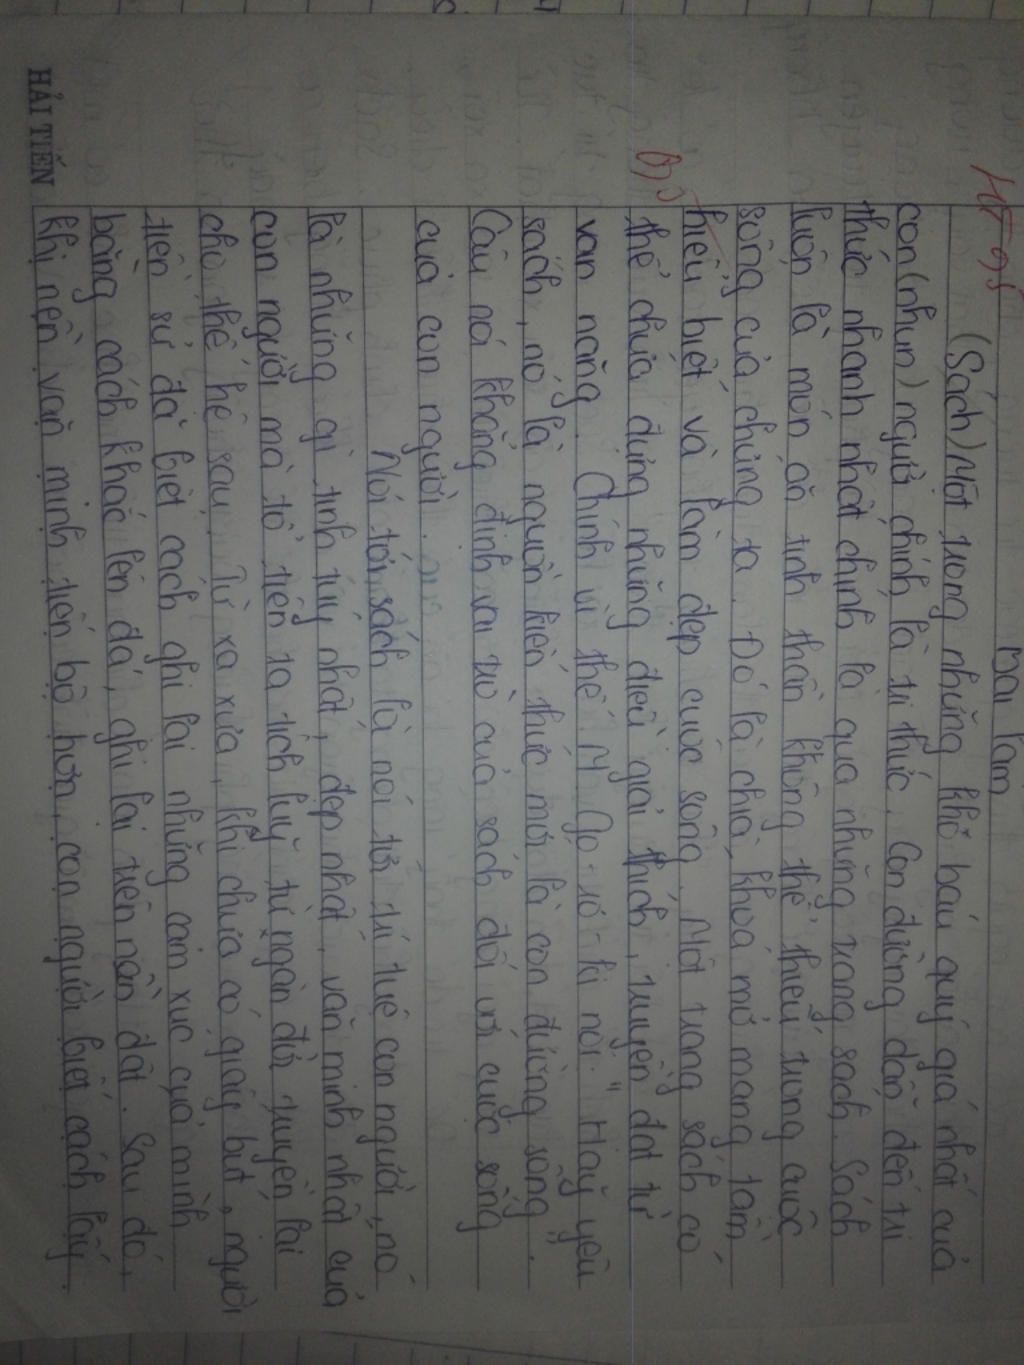 Bài làm
(Sách) Một trong những kho báu quý giá nhất của
con (nhưn) người chính là tri thức. Con đường dẫn đến tri
thức nhanh nhất chính là qua những trang sách. Sách
luôn là món ăn tinh thần không thể thiếu trong cuộc
sống của chúng ta. Đó là chìa khoá mở mang tầm
hiểu biết và làm đẹp cuộc sống. Một trang sách có
thể chứa đựng những điều giải thích, truyền đạt từ
vạn năng. Chính vì thế M. Go-rơ-ki nói: "Hãy yêu
sách, nó là nguồn kiến thức mới là con đường sống.
Câu nói khẳng định vai trò của sách đối với cuộc sống
của con người.
Nói tới sách là nói tới trí tuệ con người, nó
là những gì tinh tuý nhất, đẹp nhất, văn minh nhất của
con người mà tổ tiên ta tích luỹ từ ngàn đời truyền lại
cho thế hệ sau. Từ xa xưa, khi chưa có giấy bút, người
tiền sử đã biết cách ghi lại những cảm xúc của mình
bằng cách khắc lên đá, ghi lại trên nền đất. Sau đó,
khi nền văn minh tiến bộ hơn, con người biết cách lấy
HẢI TIẾN